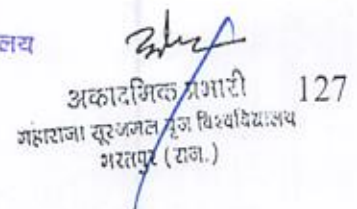 लय
अकादमिक प्रभारी 127
महाराजा सूरजमल बृज विश्वविद्यालय
भरतपुर (राज.)